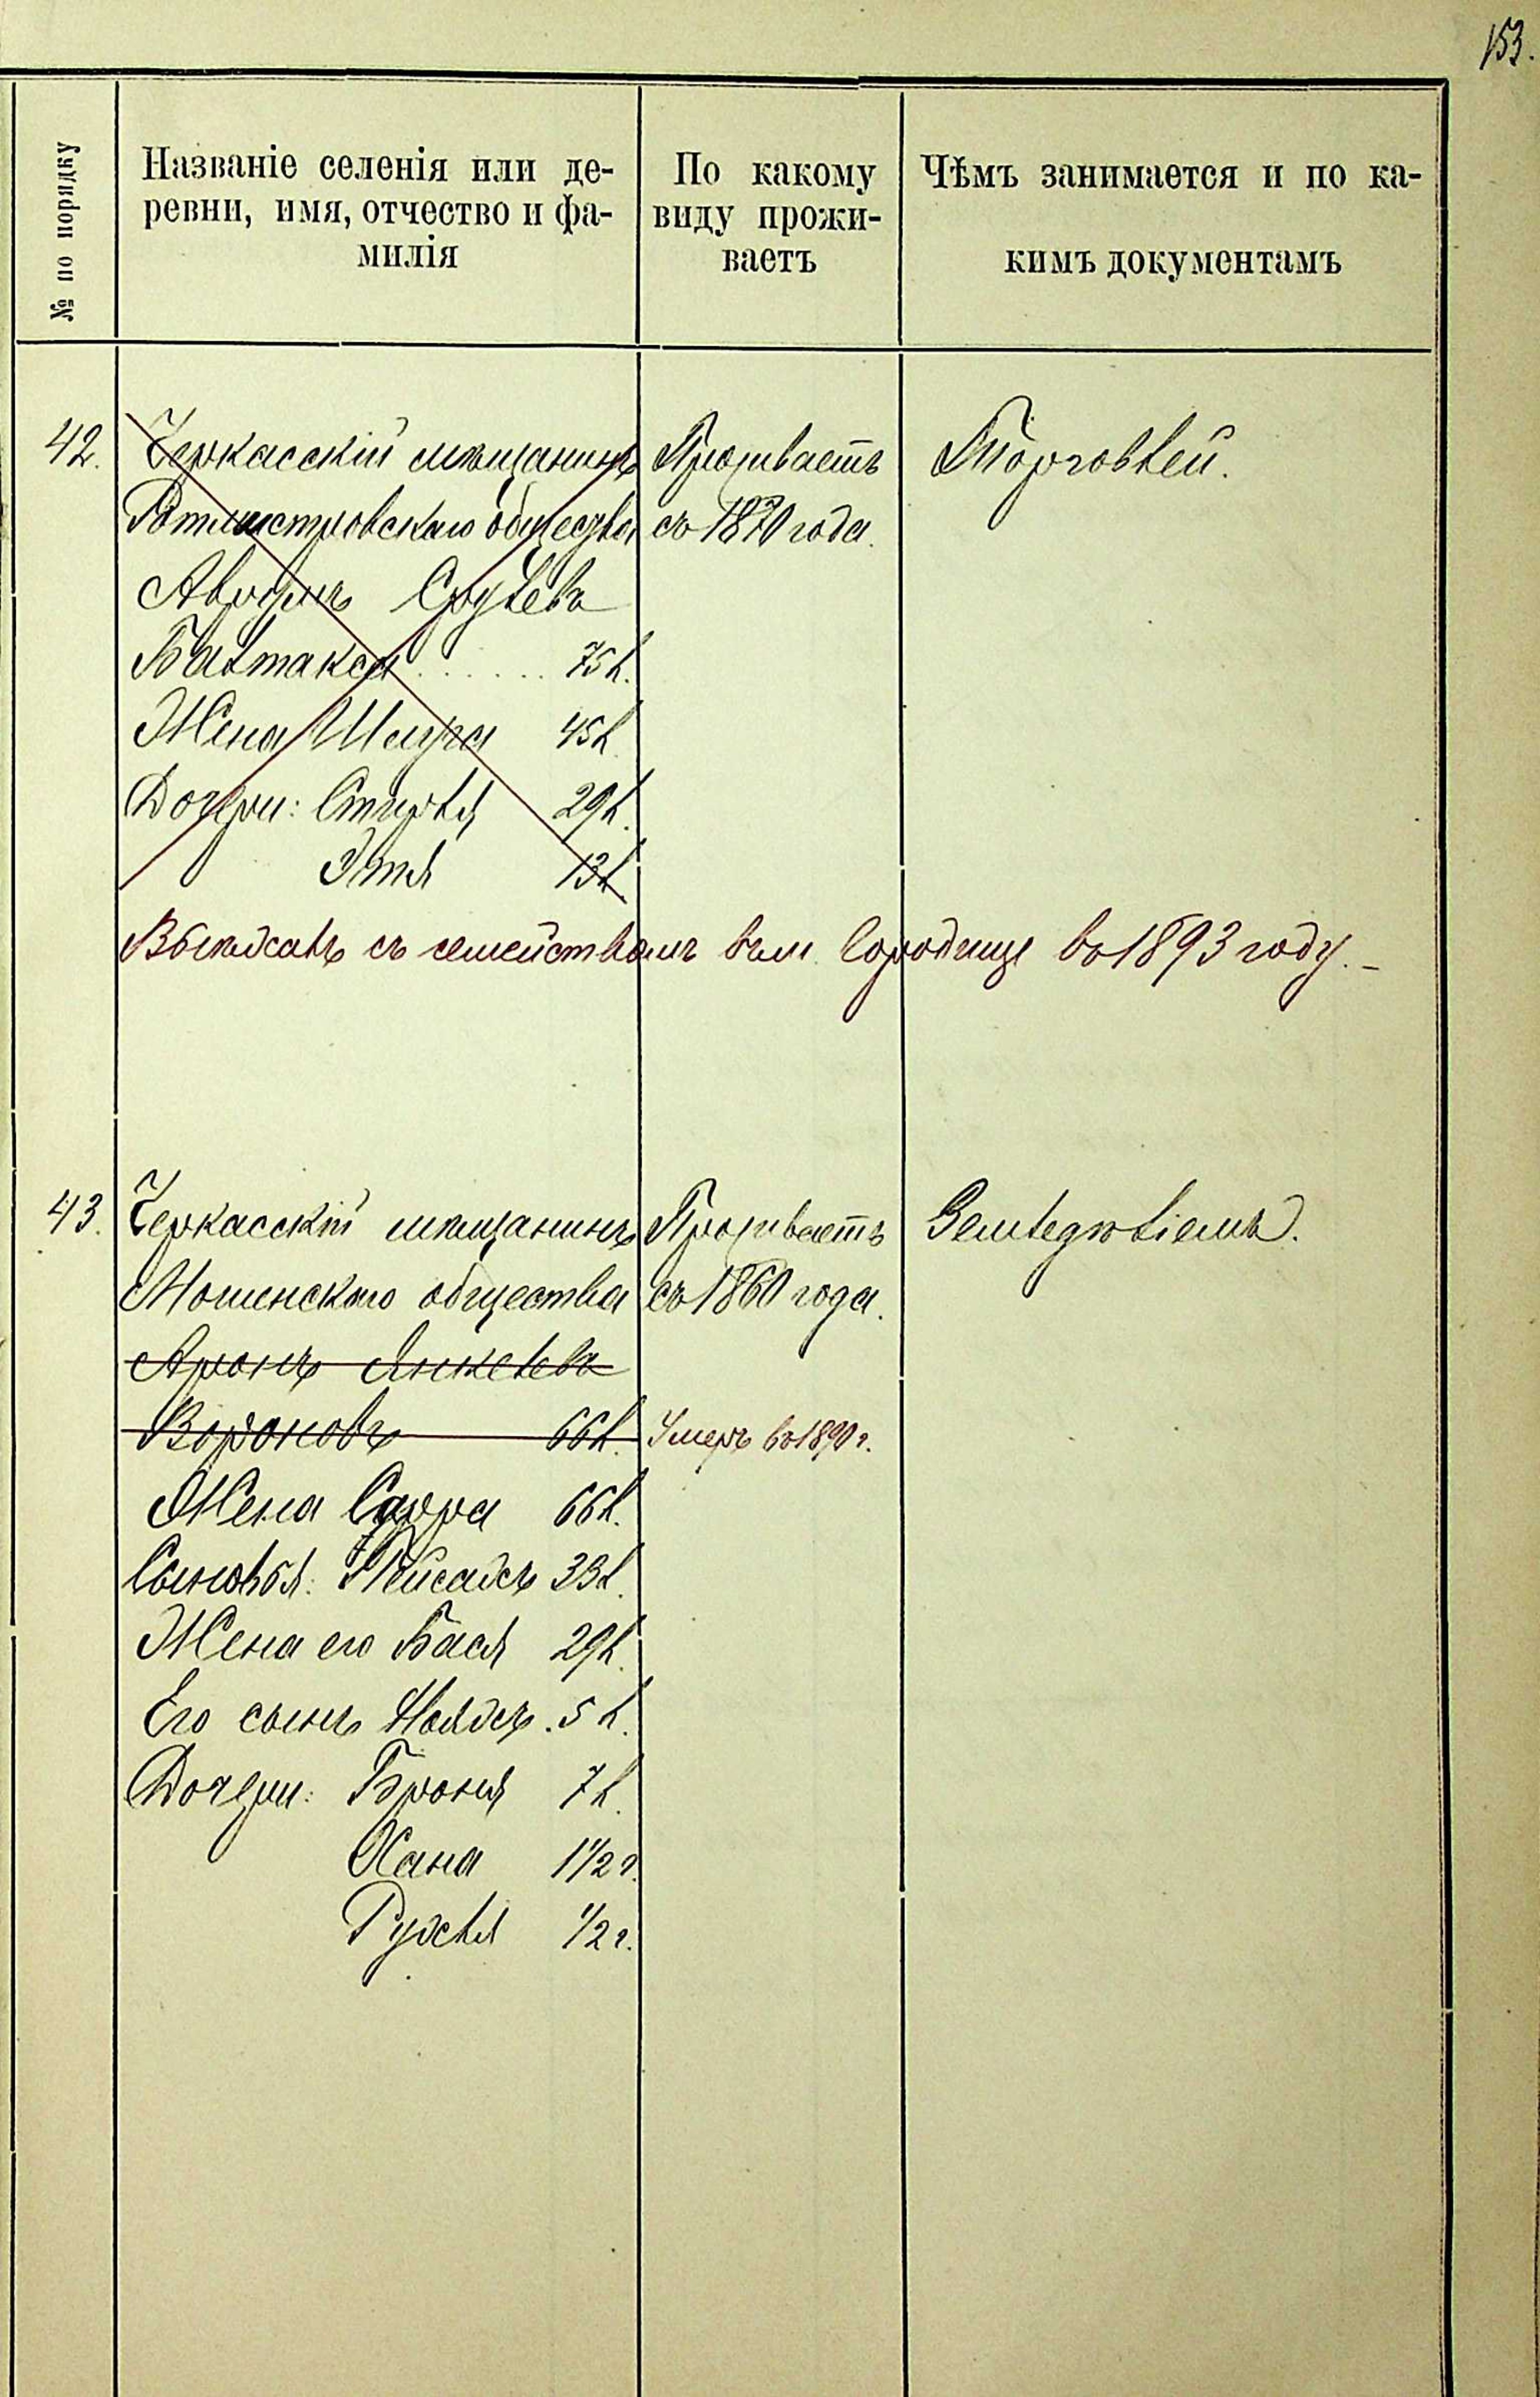 153.
№ по порядку
Названіе селенія или де-
ревни, имя, отчество и фа-
милія
По какому
виду прожи-
ваетъ
Чѣмъ занимается и по ка-
кимъ документамъ
42.
Черкасскій мѣщанинъ
Ротмистровскаго общества
Аврумъ Срулевъ
Балтакса . . . . . . 75 л.
Жена 45 л.
Дочери: Стирля 29 л.
Этя 13 л.
Проживаетъ
съ 1870 года.
Торговлей.
Выѣхалъ съ семействомъ въ м. Городище въ 1893 году. –
43.
Черкасскій мѣщанинъ
Мошенскаго общества
Аронъ Янкелевъ
Вороновъ 66 л.
Жена Сарра 66 л.
Сыновья: Пейсахъ 33 л.
Жена его Бася 29 л.
Его сынъ 5 л.
Дочери: Броня 7 л.
Хана 1 1/2 г.
Рухля 1/2 г.
Проживаетъ
съ 1860 года.
Умеръ въ 1890 г.
Земледѣліемъ.